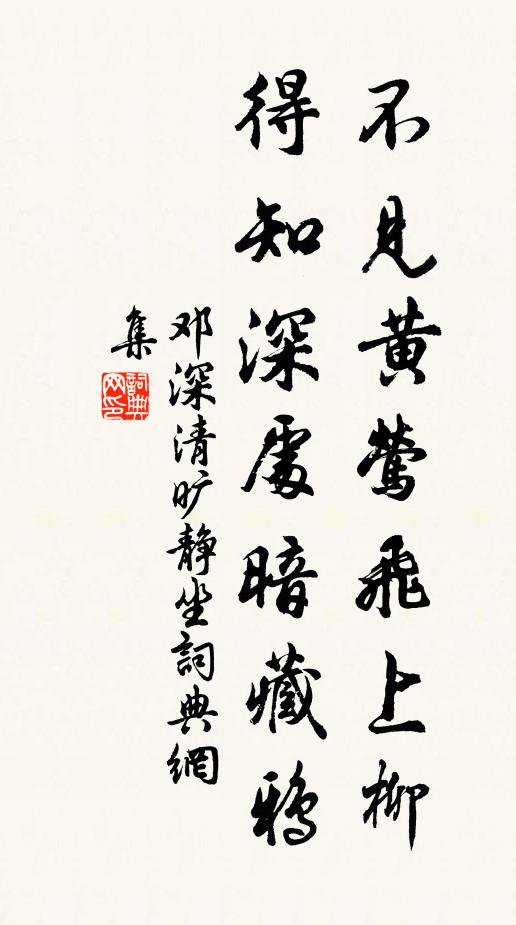 不見黃鶯飛上柳
得知深處暗藏鴉
邓深清旷静坐詞典網
集
詞典網印